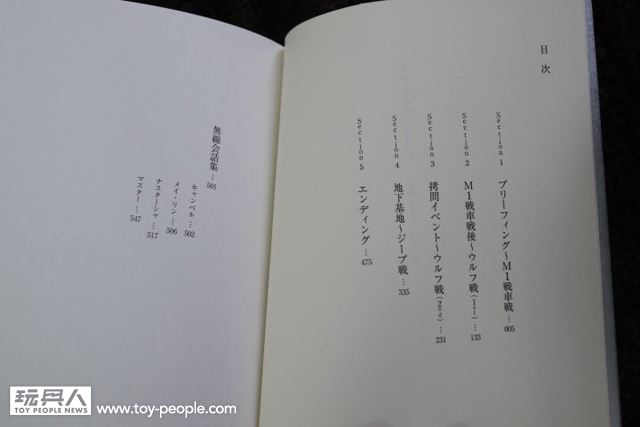 目次
Section 1 ブリーフィング～M1戦車戦…005
Section 2 M1戦車戦後～ウルフ戦(1st)…133
Section 3 拷問イベント～ウルフ戦(2nd)…231
Section 4 地下基地～ジープ戦…335
Section 5 エンディング…475
無線会話集…501
キャンベル…502
メイ・リン…506
ナスターシャ…517
マスター…547
玩具人
TOY PEOPLE NEWS
www.toy-people.com